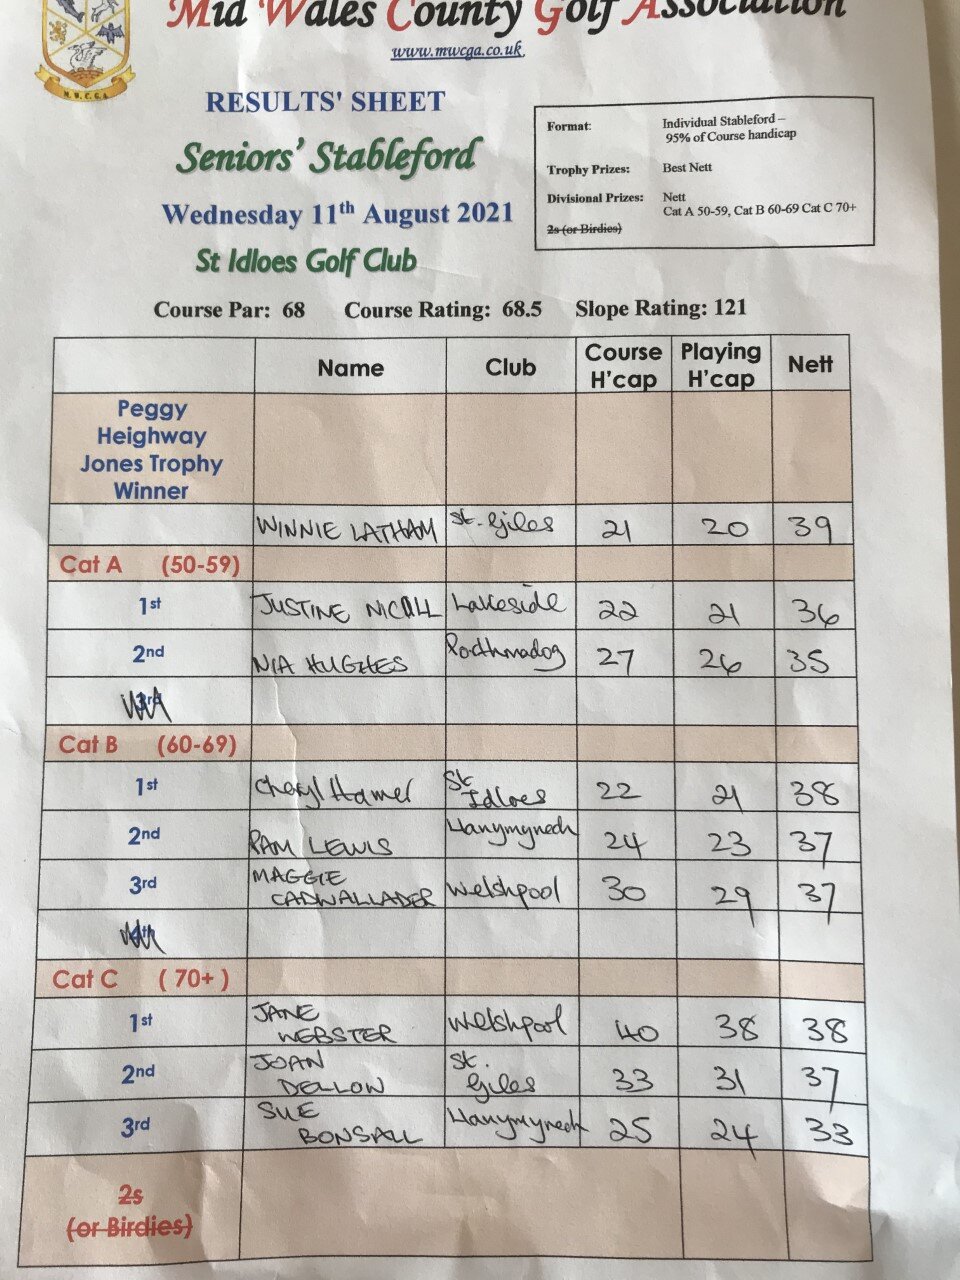 Mid Wales County Golf Association
www.mwcga.co.uk
M. W. C. G. A
RESULTS' SHEET
Seniors' Stableford
Wednesday 11th August 2021
St Idloes Golf Club
Format: Individual Stableford –
95% of Course handicap
Trophy Prizes: Best Nett
Divisional Prizes: Nett
Cat A 50-59, Cat B 60-69 Cat C 70+
2s (or Birdies)
Course Par: 68 Course Rating: 68.5 Slope Rating: 121
Name Club Course H'cap Playing H'cap Nett
Peggy
Heighway
Jones Trophy
Winner
WINNIE LATHAM St. Giles 21 20 39
Cat A (50-59)
1st JUSTINE NICALL Lakeside 22 21 36
2nd NIA HUGHES Porthmadog 27 26 35
3rd
Cat B (60-69)
1st Cheryl Hamer St Idloes 22 21 38
2nd PAM LEWIS Llanymynech 24 23 37
3rd MAGGIE CADWALLADER Welshpool 30 29 37
4th
Cat C (70+)
1st JANE WEBSTER Welshpool 40 38 38
2nd JOAN DELLOW St. Giles 33 31 37
3rd SUE BONSALL Llanymynech 25 24 33
2s
(or Birdies)